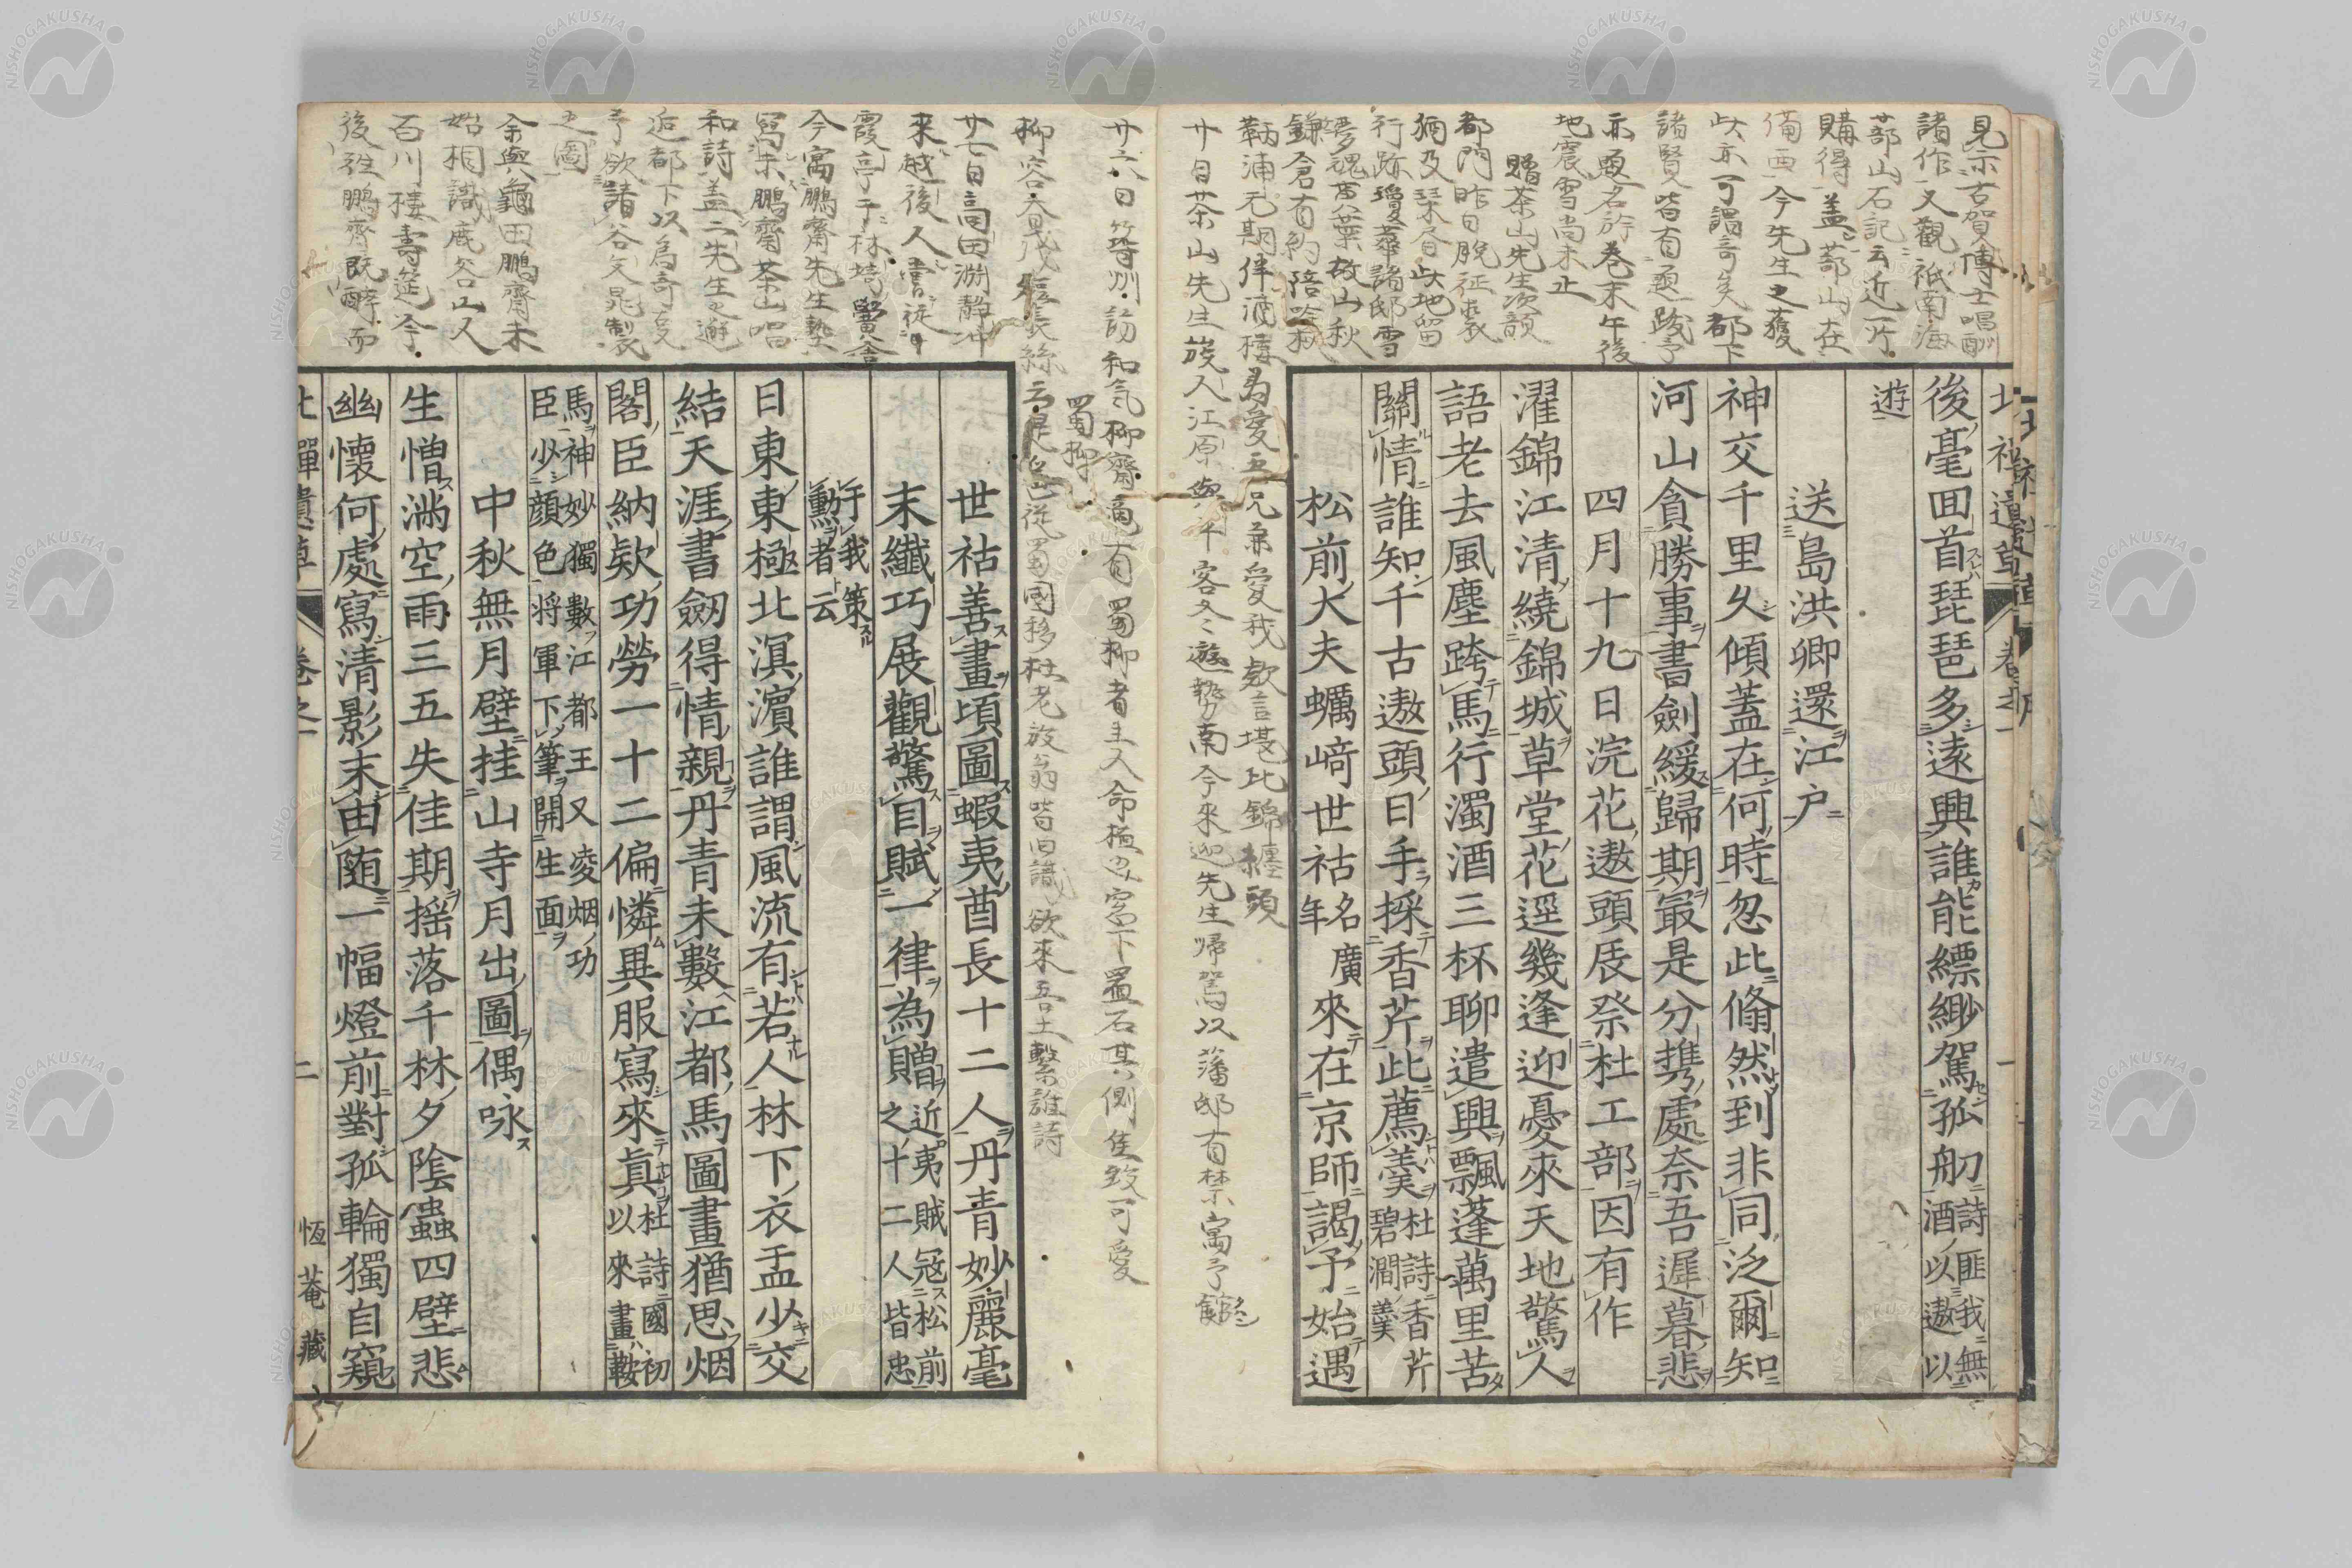 見示古賀博士唱酬
諸作又觀祗南海
蔀山石記云近所
購得蓋蔀山在
備西今先生之獲
此亦可謂奇矣都下
諸賢皆有題跋予
亦題名於卷末午後
地震雪尚未止
贈茶山先生次韻
都門昨日脫征裘
猶及琹官此地留
行跡瓊華諸邸雪
夢魂黃葉故山秋
鎌倉有約陪吟
鞆浦无期伴酒樓為愛五兄兼愛我敢言堪比錦纏頭
廿日茶山先生族人江原與平客冬遊勢南今來迎先生帰駕以藩邸有禁寓予館
北禪遺草 卷之一
後毫回首琵琶多遠興誰能縹緲駕孤舠詩匪我無
酒以遨以
遊
送島洪卿還江戸
神交千里久傾蓋在何時忽此翛然到非同泛爾知
河山貪勝事書劍緩歸期最是分携處奈吾遲暮悲
四月十九日浣花遨頭辰祭杜工部因有作
濯錦江清繞錦城草堂花逕幾逢迎憂來天地驚人
語老去風塵跨馬行濁酒三杯聊遣興飄蓬萬里苦
關情誰知千古遨頭日手採香芹此薦羹杜詩香芹
碧澗羹
松前大夫蠣崎世祜名廣
年來在京師謁予始遇
廿六日箬州訪和氣柳齋齋有蜀柳者主人命植之窓下置石其側佳致可愛
蜀柳
柳容裊々長絲云是色從蜀國移杜老放翁皆旧識欲來吾土繫誰詩
世祜善畫頃圖蝦夷酋長十二人丹青妙麗毫
末纖巧展觀驚目賦一律為贈近夷賊冦松前
之十二人皆忠
于我策
勳者云
日東東極北溟濱誰謂風流有若人林下衣盂少交
結天涯書劒得情親丹青未數江都馬圖畫猶思烟
閣臣納欵功勞一十二偏憐異服寫來眞杜詩國初
以來畫鞍
馬神妙獨數江都王又凌烟功
臣少顔色将軍下筆開生面
中秋無月壁挂山寺月出圖偶咏
生憎漰空雨三五失佳期搖落千林夕陰蟲四壁悲
幽懷何處寫清影末由随一幅燈前對孤輪獨自窺
北禪遺草 卷之一 二 恆菴藏
廿七日高田渊靜冲
来越後人嘗從事
霞亭于林崎黌舍
今寓鵬齋先生塾
寫示鵬齋茶山唱
和詩蓋二先生之邂
逅都下以為奇矣
予欲請谷文晁製
之圖
余與龜田鵬齋未
始相識底谷山人
百川樓壽筵今
後性鵬齊既醉而